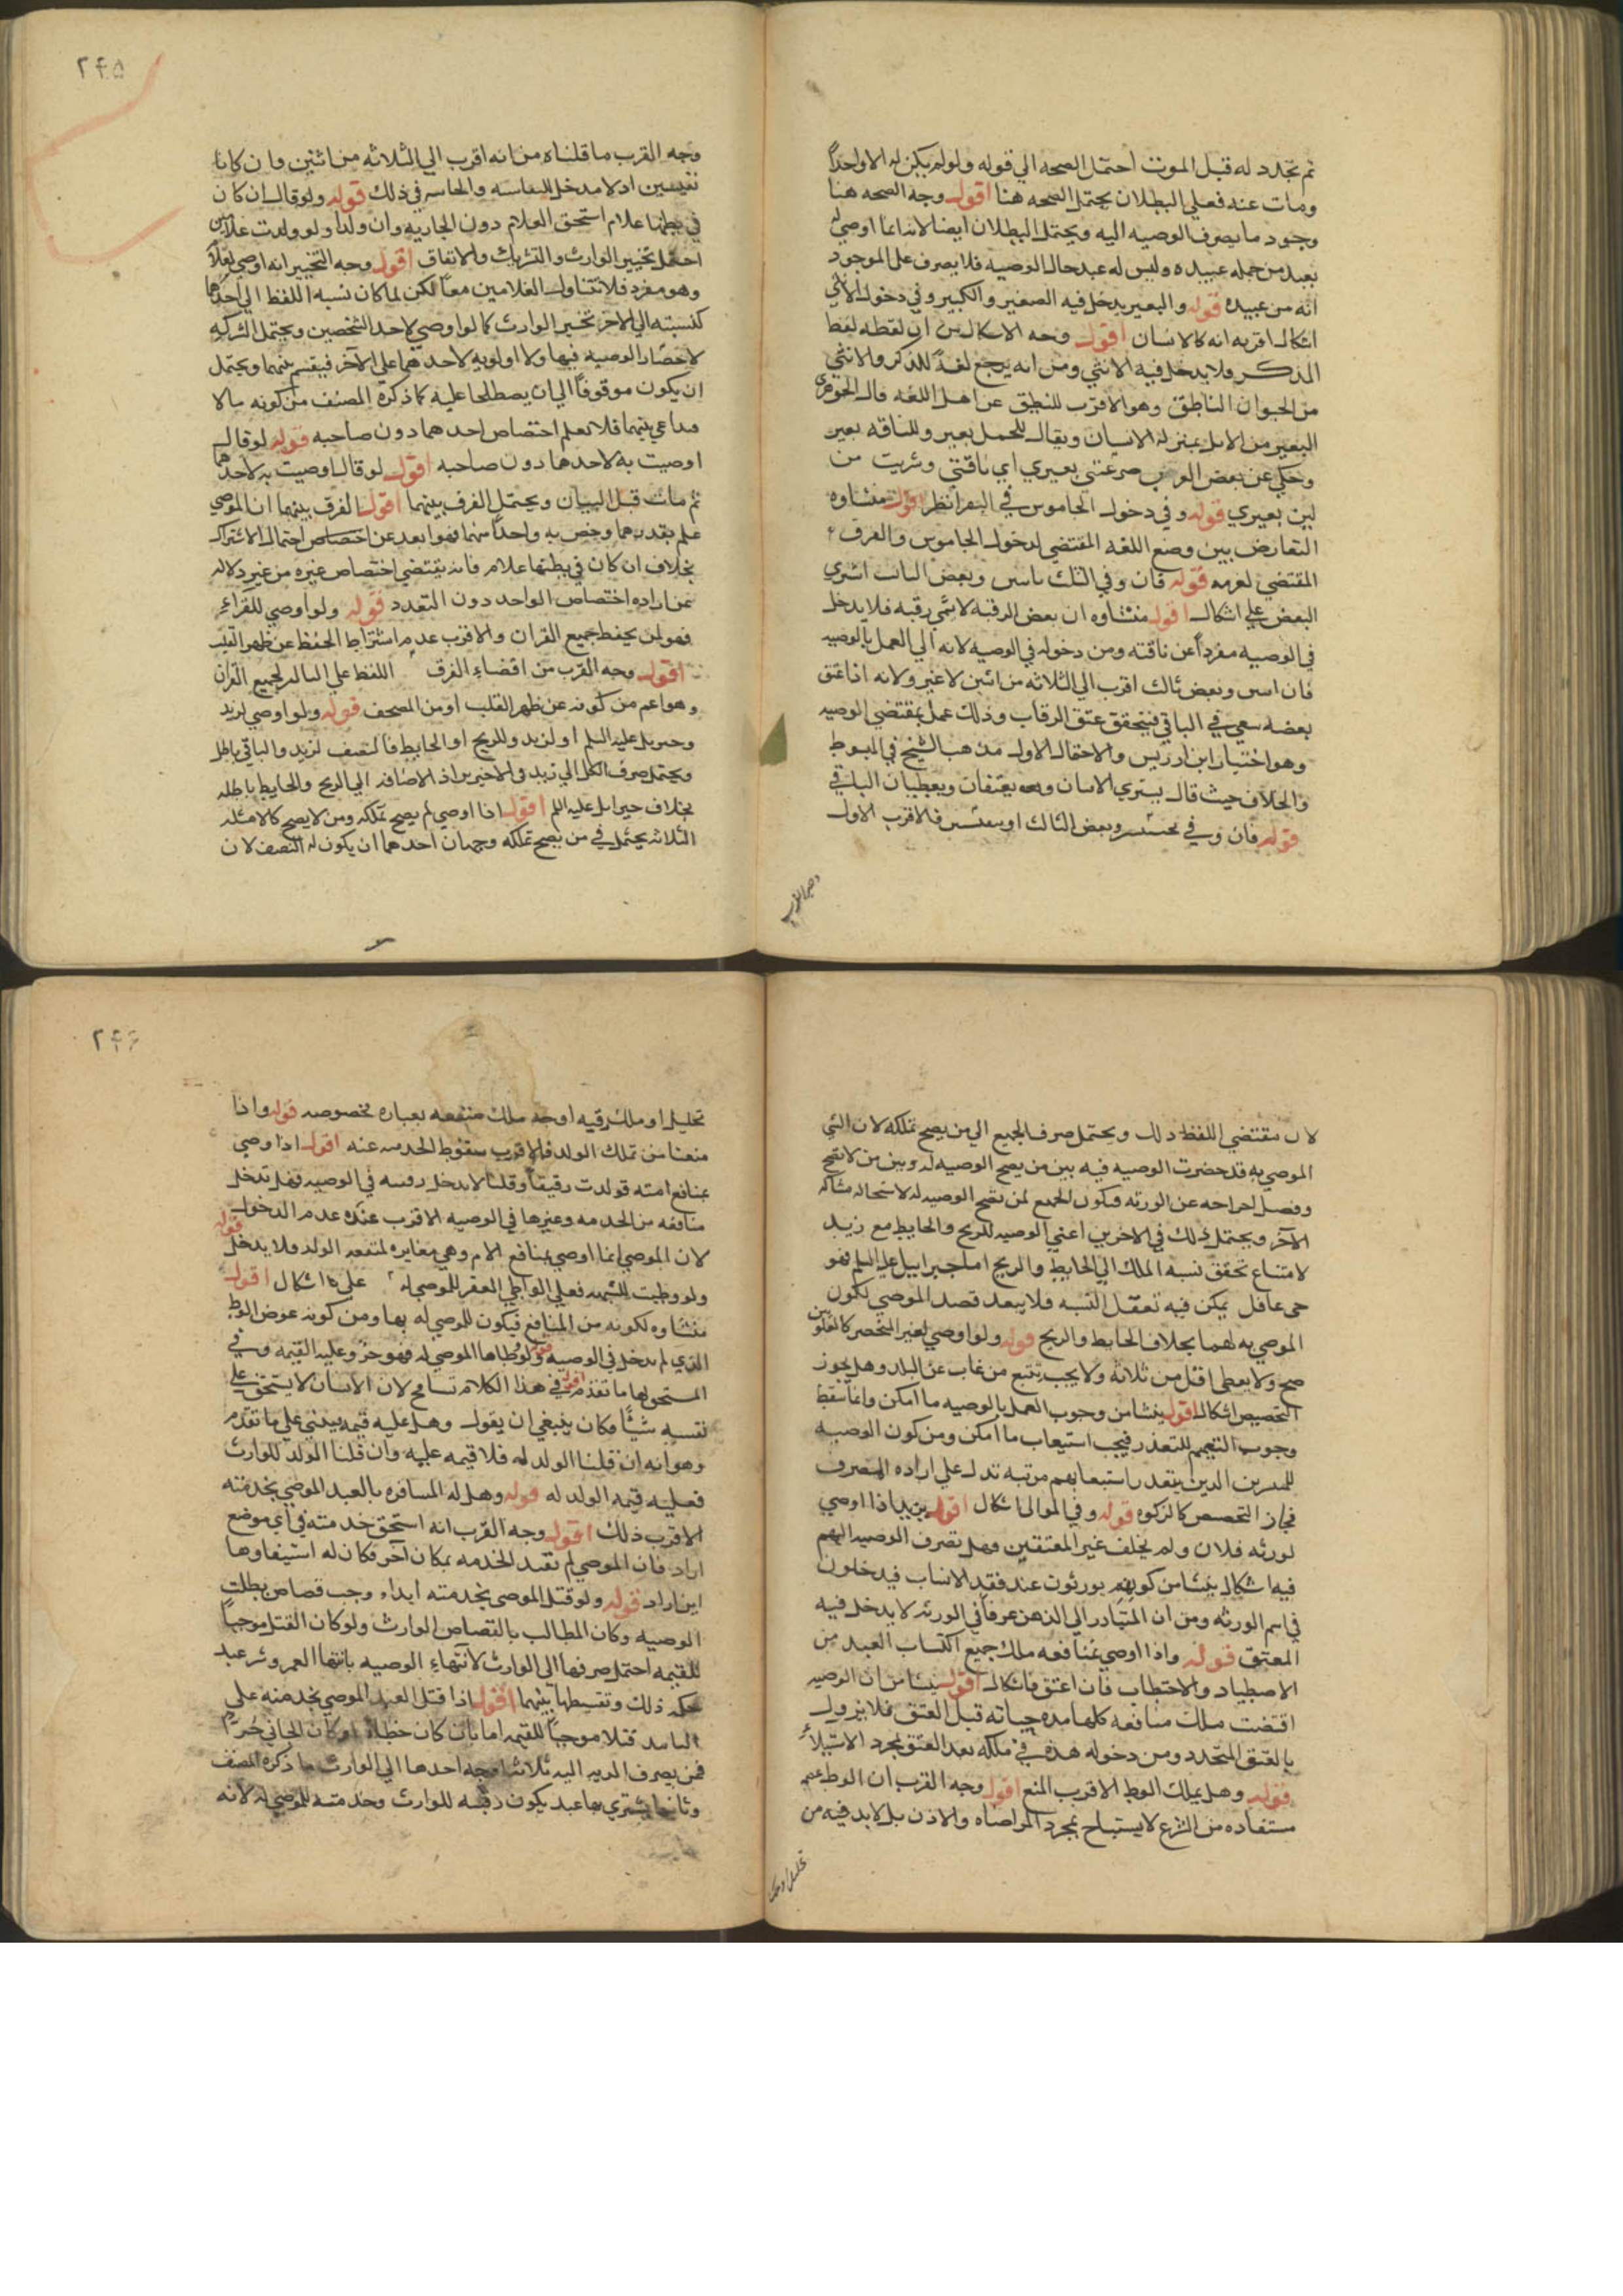 ثم تجدد له قبل الموت احتمل الصحه الي قوله ولو لم يكن له الا واحداً
ومات عنه فعلي البطلان يحتمل الصحه هنا اقول وجه الصحه هنا
وجود ما يصرف الوصيه اليه ويحتمل البطلان ايضا لانه انما اوصي له
بعبد من جمله عبيده وليس له عبد حال الوصيه فلا يصرف علي الموجود
انه من عبيده قوله والبعير يدخل فيه الصغير والكبير وفي دخول الانثي
اشكال اقربه انه كالانسان اقول وجه الاشكال من ان لفظه لفظ
المذكر فلا يدخل فيه الانثي ومن انه يرجع لغةً للذكر والانثي
من الحيوان الناطق وهو الاقرب للنطق عن اهل اللغه قال الجوهري
البعير من الابل بمنزله الانسان ويقال للجمل بعير وللناقه بعير
وحكي عن بعض العرب صرعتني بعيري اي ناقتي وشربت من
لبن بعيري قوله وفي دخول الجاموس في البقر نظر اقول منشاوه
التعارض بين وضع اللغه المقتضي لدخول الجاموس والعرف
المقتضي لعدمه قوله فان وفي الثلث باثنين وبعض الثالث اشتري
البعض علي اشكال اقول منشاوه ان بعض الرقبه لا تسمي رقبه فلا يدخل
في الوصيه مفرداً عن ناقته ومن دخوله في الوصيه لانه الي العمل بالوصيه
فان اثنين وبعض ثالث اقرب الي الثلاثه من اثنين لا غير ولانه اذا عتق
بعضه سعي في الباقي فيتحقق عتق الرقاب وذلك عمل بمقتضي الوصيه
وهو اختيار ابن ادريس والاحتمال الاول مذهب الشيخ في المبسوط
والخلاف حيث قال يشتري الاثنان ويعتقان ويعطيان الباقي
قوله فان وفي بخسيستين وبعض الثالث او بنفيستين فالاقرب الاول
وجه القرب
وجه القرب ما قلناه من انه اقرب الي الثلاثه من اثنين وان كانا
نفيسين اذ لا مدخل للنفاسه والخاسه في ذلك قوله ولو قال ان كان
في بطنها غلام استحق الغلام دون الجاريه وان ولدا ولو ولدت غلامين
احتمل تخيير الوارث والتشريك والايقاف اقول وجه التخيير انه اوصي لغلام
وهو مفرد فلا تتناول الغلامين معاً لكن لما كان نسبه اللفظ الي احدهما
كنسبته الي الاخر تخير الوارث كما لو اوصي لاحد الشخصين ويحتمل الشركه
لانحصار الوصيه فيها ولا اولويه لاحدهما علي الآخر فيقسم بينهما ويحتمل
ان يكون موقوفاً الي ان يصطلحا عليه كما ذكره المصنف من كونه مالا
متداعي بينهما فلا نعلم اختصاص احدهما دون صاحبه قوله لو قال
اوصيت به لاحدهما دون صاحبه اقول لو قال اوصيت به لاحدهما
ثم مات قبل البيان ويحتمل الفرق بينهما اقول الفرق بينهما ان الموصي
علم بتعددهما وخص به واحداً منهما فهو ابعد عن اختصاص احتمال الاشتراك
بخلاف ان كان في بطنها غلام فانه يقتضي اختصاص غيره من غير دلاله
عن اراده اختصاص الواحد دون التعدد قوله ولو اوصي للقراء
فهو لمن يحفظ جميع القران والاقرب عدم اشتراط الحفظ عن ظهر القلب
اقول وجه القرب من اقتضاء العرف اللفظ علي التالي لجميع القرآن
وهو اعم من كونه عن ظهر القلب او من المصحف قوله ولو اوصي لزيد
وجبريل عليه السلم او لزيد وللريح او الحايط فالنصف لزيد والباقي باطل
ويحتمل صرف الكل الي زيد في الاخيرين اذ الاضافه الي الريح والحايط باطله
بخلاف جبرايل عليه السلم اقول اذا اوصي لم يصح تملكه ومن لا يصح كالامثله
الثلاثه يحتمل في من يصح تملكه وجهان احدهما ان يكون له النصف لان
۲۴۵
لان مقتضي اللفظ ذلك ويحتمل صرف الجميع الي من يصح تملكه لان الشي
الموصي به قد حضرت الوصيه فيه بين من يصح الوصيه له وبين من لا تصح
وفصل اخراجه عن الورثه فيكون الجميع لمن تصح الوصيه له لاستحاله مشاركه
الآخر ويحتمل ذلك في الاخرين اعني الوصيه للريح والحايط مع زيد
لامتناع تحقق نسبه الملك الي الحايط والريح اما جبراييل عليه السلم فهو
حي عاقل يمكن فيه تعقل النسبه فلا يبعد قصد الموصي لكون
الموصي به لهما بخلاف الحايط والريح قوله ولو اوصي لغير المنحصر كالعلويين
صح ولا يعطي اقل من ثلاثه ولا يجب تتبع من غاب عن البلد وهل يجوز
التخصيص اشكال اقول ينشا من وجوب العمل بالوصيه ما امكن وانما سقط
وجوب التعميم للتعذر فيجب استيعاب ما امكن ومن كون الوصيه
للمنتشرين الذين يتعذر استيعابهم مرتبه تدل علي اراده المصرف
فجاز التخصيص كالزكوه قوله وفي الموالي اشكال اقول يريد اذا اوصي
لورثه فلان ولم يخلف غير المعتقين وهل تصرف الوصيه اليهم
فيه اشكال ينشا من كونهم يورثون عند فقد الانساب فيدخلون
في اسم الورثه ومن ان المتبادر الي الذهن عرفاً في الورثه لا يدخل فيه
المعتق قوله واذا اوصي بمنافعه ملك جميع اكتساب العبد من
الاصطياد والاحتطاب فان اعتق فاشكال اقول ينشا من ان الوصيه
اقتضت ملك منافعه كلها مده حياته قبل العتق فلا يزول
بالعتق المتجدد ومن دخوله هذه في ملكه بعد العتق بمجرد الاستيلاء
قوله وهل يملك الوطي الاقرب المنع اقول وجه القرب ان الوطي
مستفاده من الشرع لا يستباح بمجرد المراضاه والاذن بل لا بد فيه من
تحليل او ملك
تحليل او ملك رقبه او جه ملك منفعه بعباره مخصوصه قوله واذا
منعنا من تملك الولد فالاقرب سقوط الخدمه عنه اقول اذا اوصي
بمنافع امته فولدت رقيقاً وقلنا لا يدخل رقبته في الوصيه فهل تدخل
منافعه من الخدمه وغيرها في الوصيه الاقرب عنده عدم الدخول
لان الموصي انما اوصي بمنافع الام وهي مغايره لمنفعه الولد ولا يدخل قوله
ولو وطيت للشبهه فعلي الواطي العقر للموصي له علي اشكال اقول
منشاوه لكونه من المنافع فيكون للموصي له بها ومن كونه عوض الوطي
الذي لم يدخل في الوصيه قوله ولو وطاها الموصي له فهو حر وعليه القيمه وفي
المستحق لها ما تقدم اقول في هذا الكلام تسامح لان الانسان لا يستحق علي
نفسه شيئاً وكان ينبغي ان يقول وهل عليه قيمه يبتني علي ما تقدم
وهو انه ان قلنا الولد له فلا قيمه عليه وان قلنا الولد للوارث
فعليه قيمه الولد له قوله وهل له المسافره بالعبد الموصي بخدمته
الاقرب ذلك اقول وجه القرب انه استحق خدمته في اي موضع
اراد فان الموصي لم تقيد الخدمه بمكان آخر فكان له استيفاوها
اين اراد قوله ولو قتل الموصي بخدمته ابداء وجب قصاص بطلت
الوصيه وكان المطالب بالقصاص الوارث ولو كان القتل موجباً
للقيمه احتمل صرفها الي الوارث لانتهاء الوصيه بانتها العمر وشر عبد
حكمه ذلك وتقسيطها بينهما اقول اذا قتل العبد الموصي بخدمته علي
التابيد قتلا موجباً للقيمه اما بان كان خطاء او كان الجاني حراً
فمن يصرف الديه اليه ثلاثه اوجه احدها الي الوارث ما ذكره المصنف
وثانيها يشتري بها عبد يكون رقبته للوارث وخدمته للموصي له لانه
۲۴۶